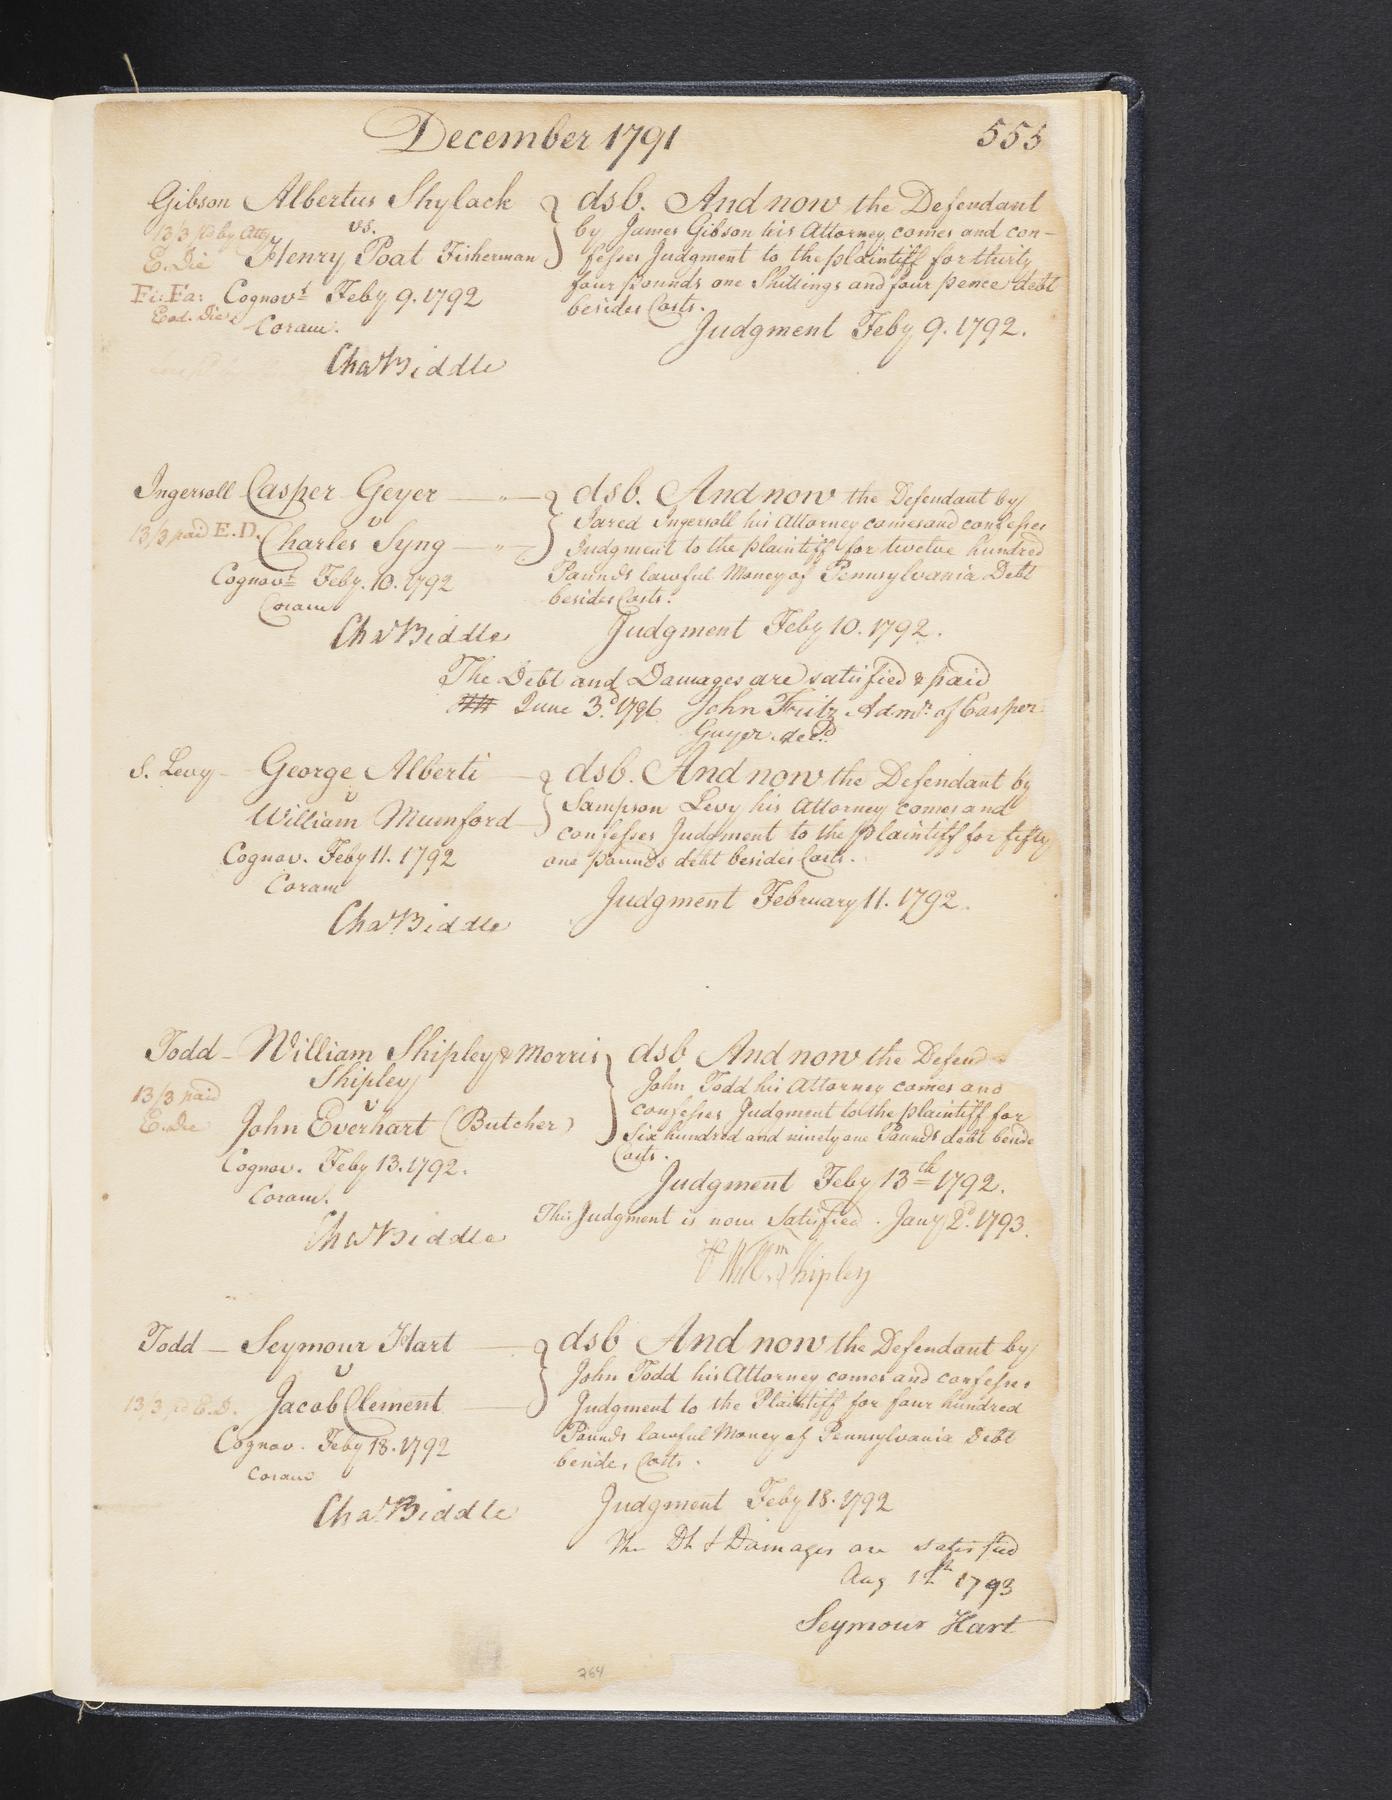 December 1791
555
Gibson Albertus Shylack
13/3 pd by Atty
vs.
E. Die Henry Poat Fisherman
Fi: Fa: Cognovt Feby 9. 1792
Eod. Die Coram.
Chas Biddle
dsb. And now the Defendant
by James Gibson his Attorney comes and con-
fesses Judgment to the plaintiff for thirty
four pounds one Shillings and four pence debt
besides Costs.
Judgment Feby 9. 1792.
Ingersoll Casper Geyer
v
13/3 paid E. D. Charles Syng
Cognovt Feby. 10. 1792
Coram
Chas Biddle
dsb. And now the Defendant by
Jared Ingersoll his Attorney comes and confesses
Judgment to the plaintiff for twelve hundred
Pounds lawful Money of Pennsylvania Debt
besides Costs.
Judgment Feby 10. 1792.
The Debt and Damages are satisfied & paid
June 3d. 1796 John Fritz Admr. of Casper
Guyer decd.
S. Levy - George Alberti
v
William Mumford
Cognov. Feby 11. 1792
Coram
Chas Biddle
dsb. And now the Defendant by
Sampson Levy his Attorney comes and
confesses Judgment to the plaintiff for fifty
one pounds debt besides Costs.
Judgment February 11. 1792.
Todd - William Shipley & Morris
Shipley
13/3 paid
v
E. Die John Everhart (Butcher)
Cognov. Feby 13. 1792.
Coram.
Chas Biddle
dsb And now the Defend
John Todd his Attorney comes and
confesses Judgment to the plaintiff for
Six hundred and ninety one Pounds debt beside
Costs.
Judgment Feby 13th 1792.
This Judgment is now Satisfied. Jany 2d. 1793.
Willm Shipley
Todd - Seymour Hart
v
13/3 pd E. D. Jacob Clement
Cognov. Feby 18. 1792
Coram
Chas Biddle
dsb And now the Defendant by
John Todd his Attorney comes and confesses
Judgment to the Plaintiff for four hundred
Pounds lawful Money of Pennsylvania Debt
besides Costs.
Judgment Feby 18. 1792
The Dt & Damages are satisfied
Aug 12th 1793
Seymour Hart
264